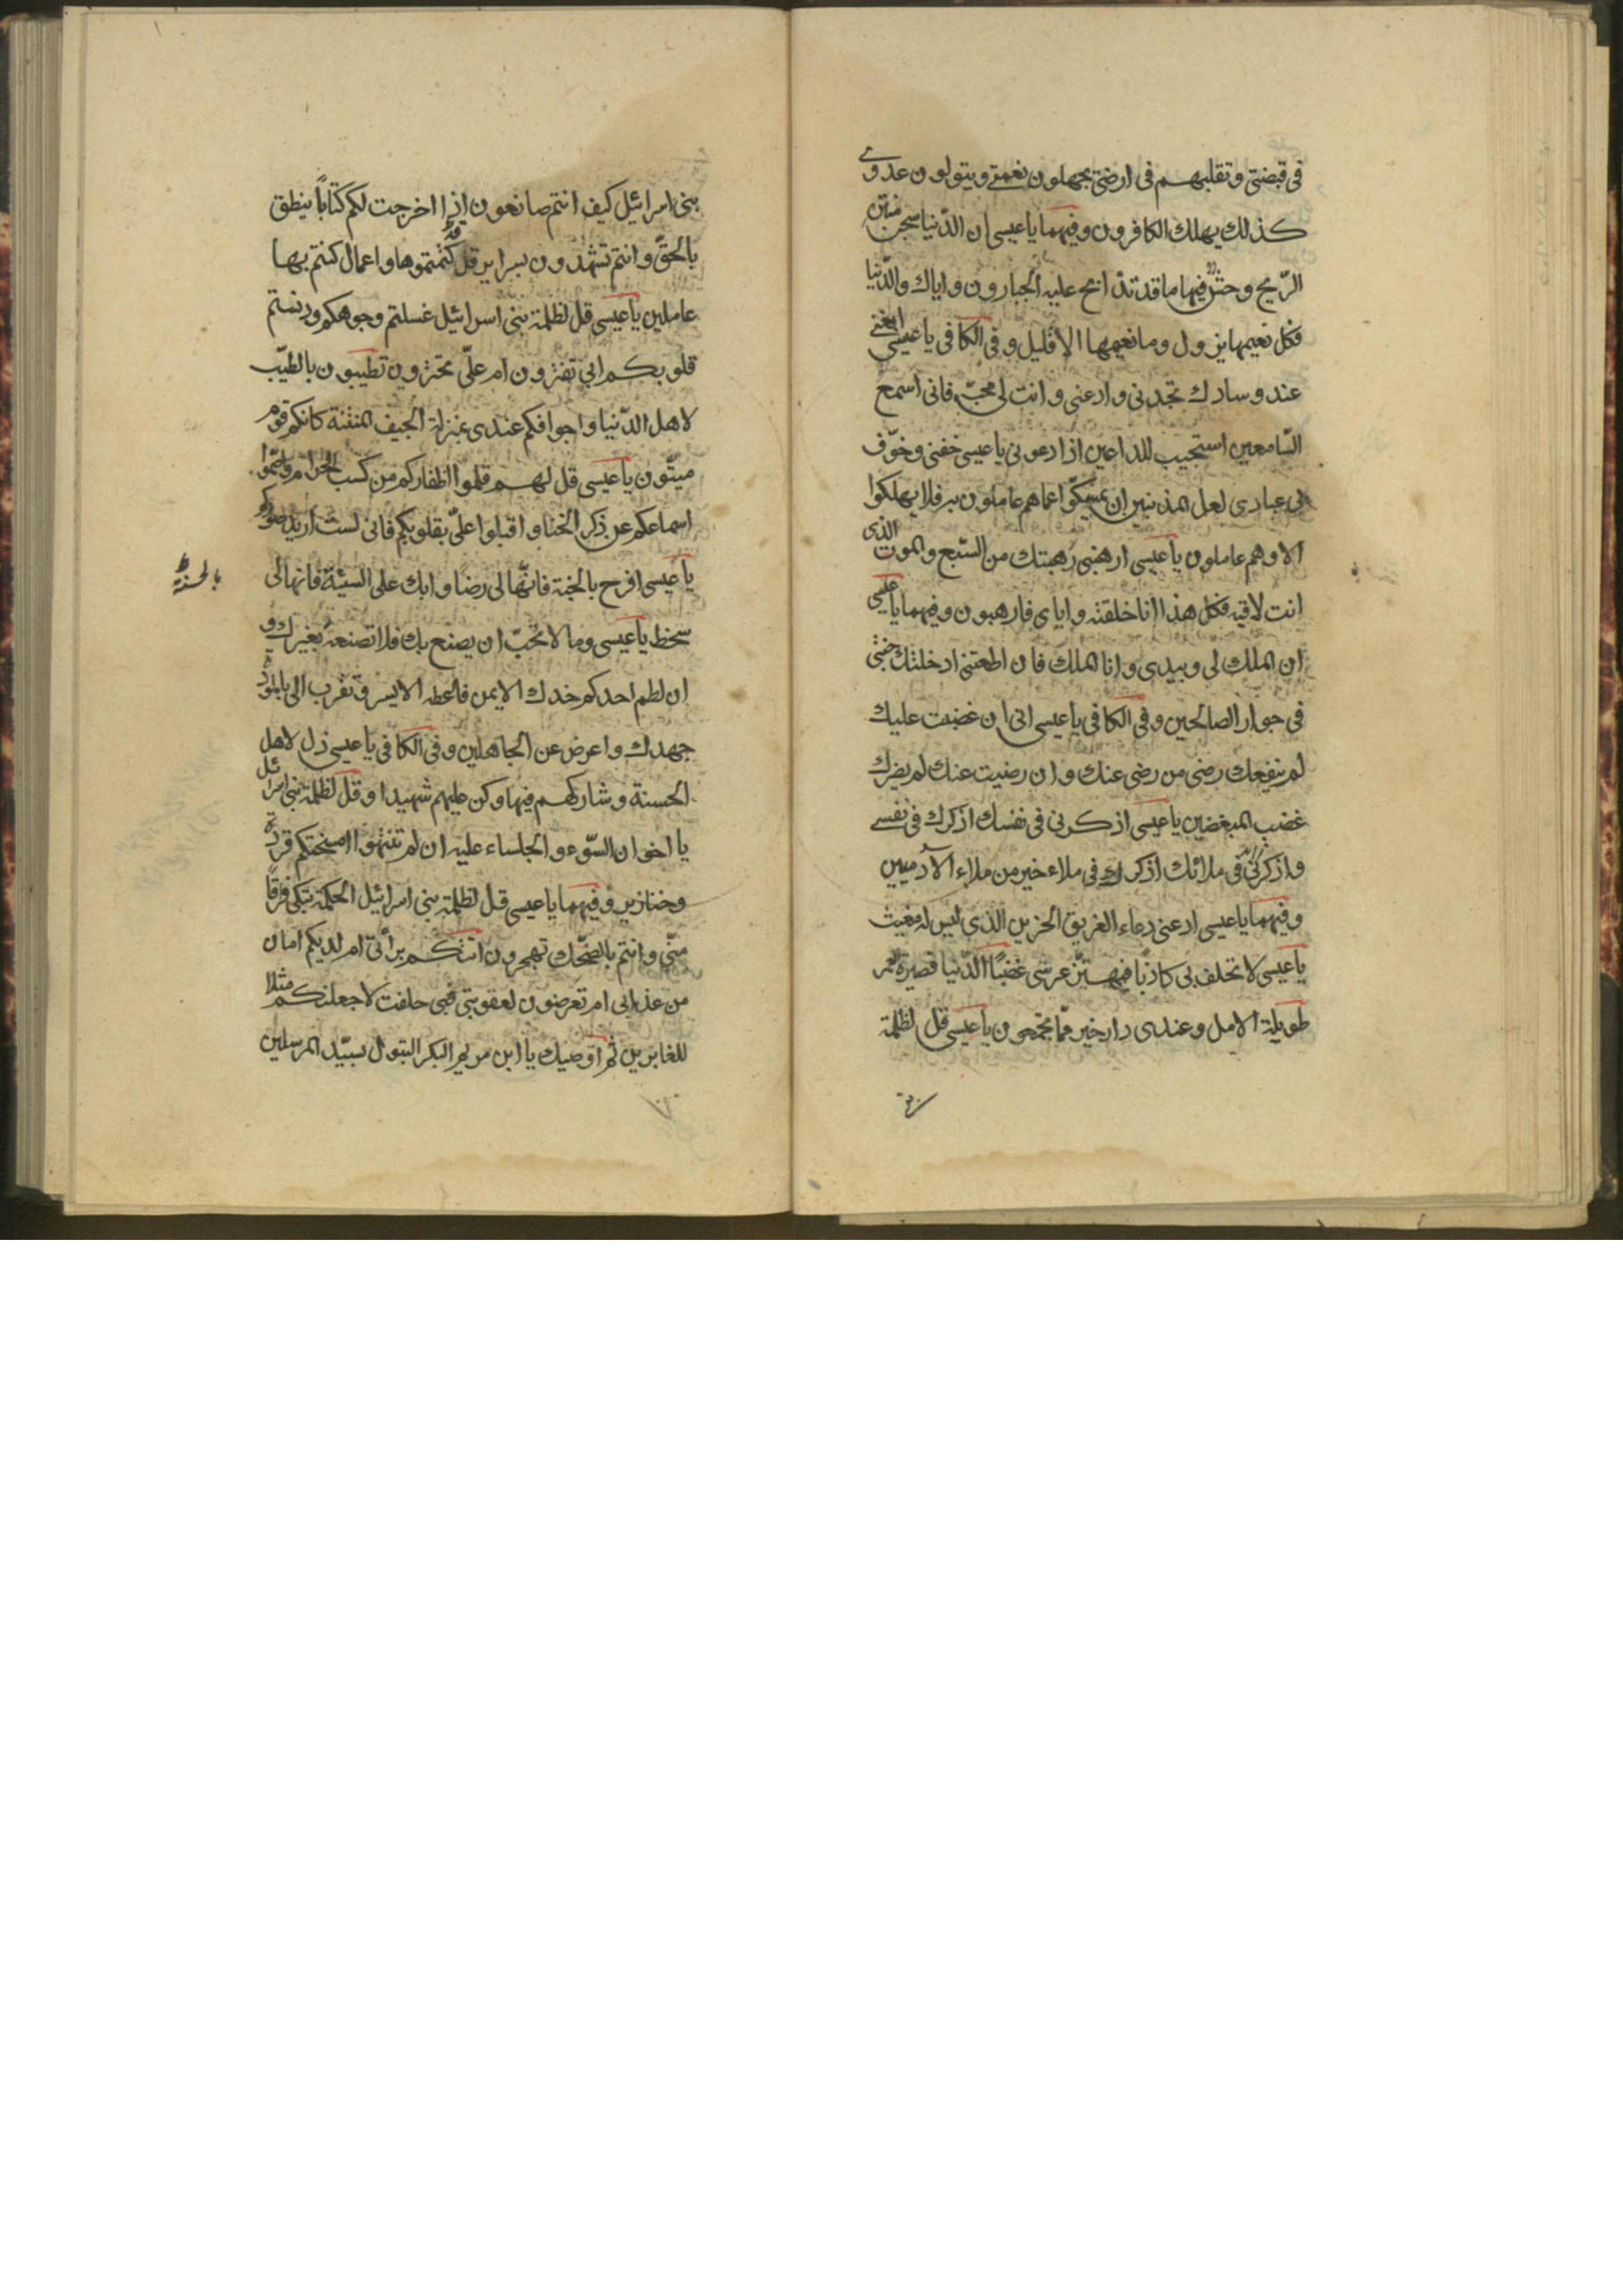 في قبضتي وتقلبهم في ارضي يجهلون نعمتي ويتولون عدوي
كذلك يهلك الكافرون وفيهما يا عيسى ان الدّنيا سجن منتن
الرّيح وحش فيها ما قد تذابح عليه الجبارون واياك والدّنيا
فكل نعيمها يزول وما نعيمها الا قليل وفي الكافي يا عيسى ابغني
عند وسادك تجدني وادعني وانت لي محبّ فاني اسمع
السّامعين استجيب للداعين اذا دعوني يا عيسى خفني وخوّف
بي عبادي لعل المذنبين ان يمسكوا عما هم عاملون به فلا يهلكوا
الا وهم عاملون يا عيسى ارهبني رهبتك من السّبع والموت الذي
انت لاقيه فكل هذا انا خلقته واياي فارهبون وفيهما يا عيسى
ان الملك لي وبيدي وانا الملك فان اطعتني ادخلتك جنتي
في جوار الصالحين وفي الكافي يا عيسى اني ان غضبت عليك
لم ينفعك رضى من رضي عنك وان رضيت عنك لم يضرك
غضب المبغضين يا عيسى اذكرني في نفسك اذكرك في نفسي
واذكرني في ملائك اذكرك في ملاء خير من ملاء الآدميين
وفيهما يا عيسى ادعني دعاء الغريق الحزين الذي ليس له مغيث
يا عيسى لا تحلف بي كاذبًا فيهتزّ عرشي غضبًا الدّنيا قصيرة العمر
طويلة الامل وعندي دار خير ممّا تجمعون يا عيسى قل لظلمة
بني اسرائيل كيف انتم صانعون اذا اخرجت لكم كتابًا ينطق
بالحقّ وانتم تشهدون بسراير قد كتمتموها واعمال كنتم بها
عاملين يا عيسى قل لظلمة بني اسرائيل غسلتم وجوهكم ودنستم
قلوبكم ابي تغترون ام عليّ تجترون تطيبون بالطيّب
لاهل الدّنيا واجوافكم عندي بمنزلة الجيف المنتنة كانكم قوم
ميّتون يا عيسى قل لهم قلموا اظفاركم من كسب الحرام واصمّوا
اسماعكم عن ذكر الخنا واقبلوا عليّ بقلوبكم فاني لست اريد صوركم
يا عيسى افرح بالجنة فانّها لي رضا وابك على السيئة فانها لي
بالحسنة ظ
سخط يا عيسى وما لا تحبّ ان يصنع بك فلا تصنعه بغيرك و
ان لطم احدكم خدك الايمن فاعطه الايسر وتقرب الي بالمودّة
جهدك واعرض عن الجاهلين وفي الكافي يا عيسى ذل لاهل
الحسنة وشاركهم فيها وكن عليهم شهيدا وقل لظلمة بني اسرائيل
يا اخوان السّوء والجلساء عليه ان لم تنتهوا امسختكم قردة
وخنازير وفيهما يا عيسى قل لظلمة بني اسرائيل الحكمة تبكي فرقًا
منّي وانتم بالضّحك تهجرون اتتكم برأتي ام لديكم امان
من عذابي ام تعرضون لعقوبتي فبي حلفت لاجعلنكم مثلا
للغابرين ثم اوصيك يا ابن مريم البكر البتول بسيّد المرسلين